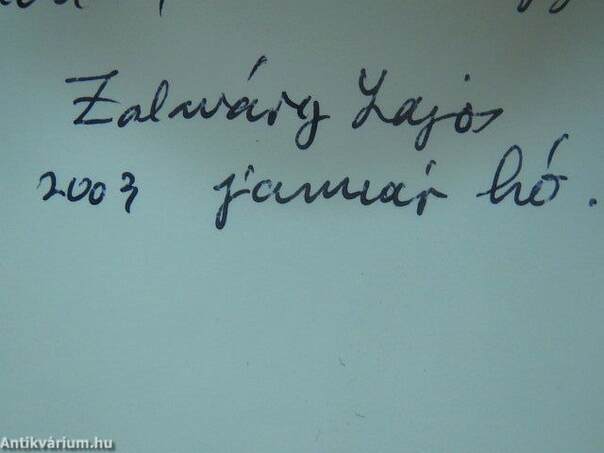 Zalaváry Lajos
2003 január hó.
Antikvárium.hu